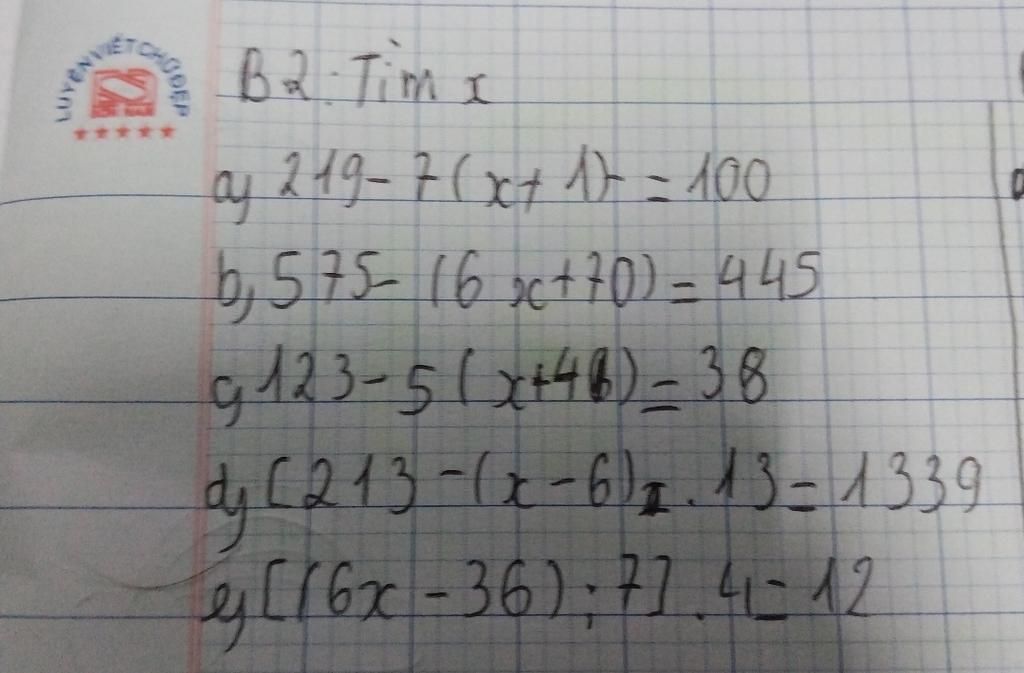 LUYỆN VIẾT CHỮ ĐẸP
B2: Tìm x
a, 219 - 7(x + 1) = 100
b, 575 - (6x + 70) = 445
c, 123 - 5(x + 4) = 38
d, [213 - (x - 6)] . 13 = 1339
e, [(6x - 36) : 7] . 4 = 12